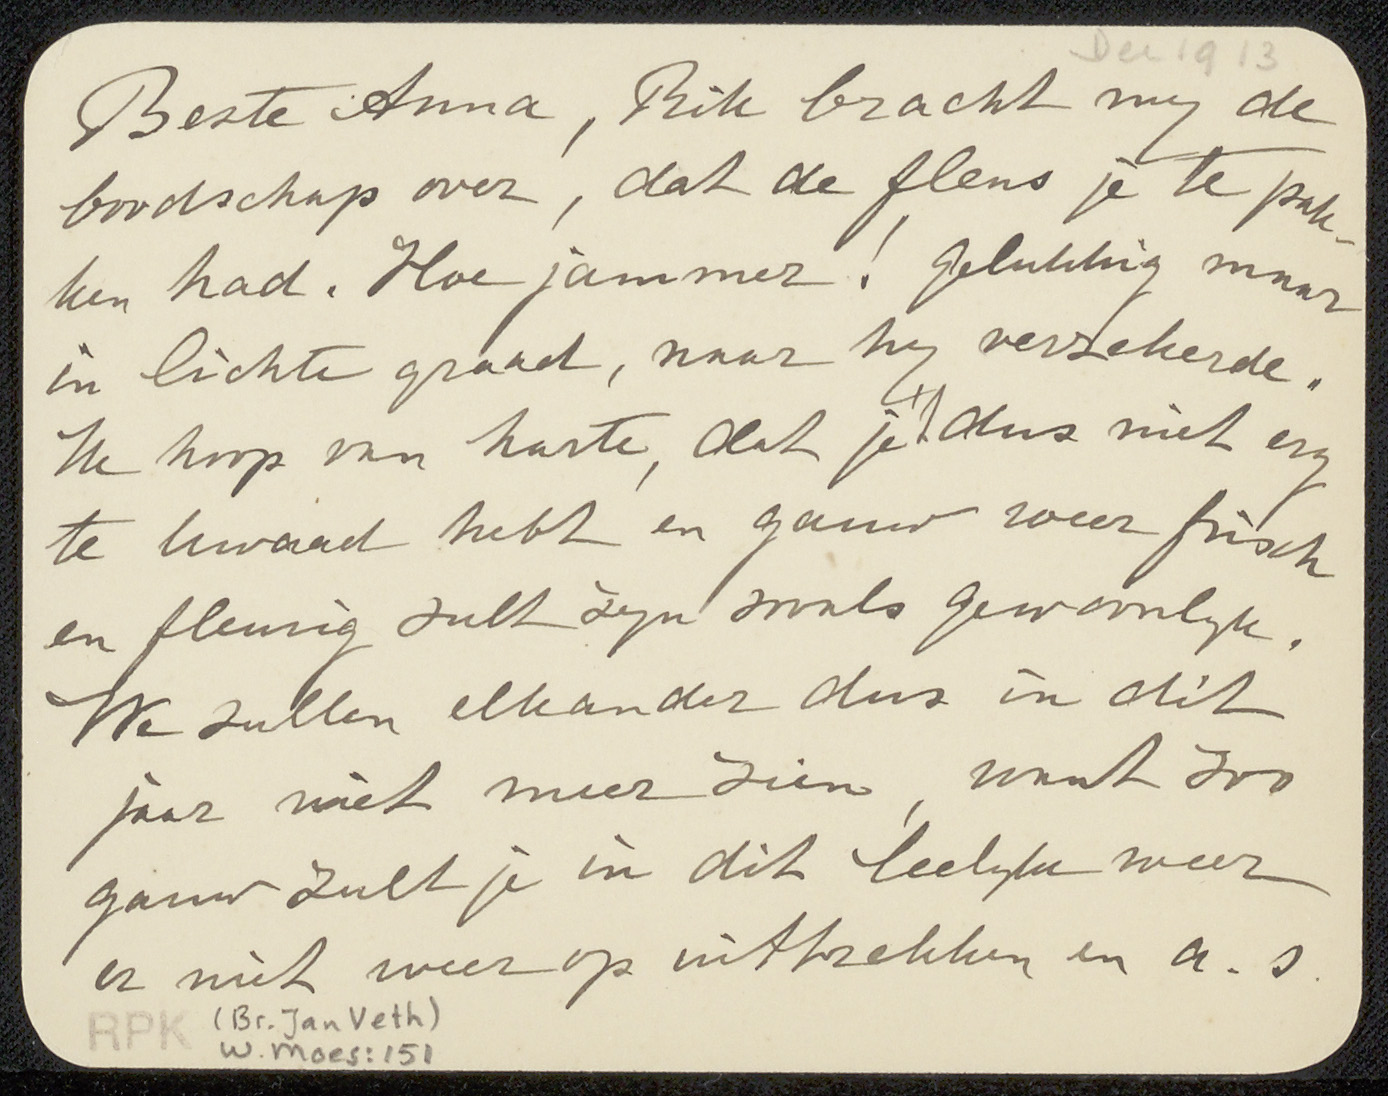 Dec 1913
Beste Anna, Rik bracht my de
boodschap over, dat de flens je te pak-
ken had. Hoe jammer! gelukkig maar
in lichte graad, naar hy verzekerde.
Ik hoop van harte, dat je 't dus niet erg
te kwaad hebt en gauw weer frisch
en fleurig zult zyn zooals gewoonlyk.
We zullen elkander dus in dit
jaar niet meer zien, want zoo
gauw zult je in dit leelyke weer
er niet weer op uittrekken en a. s.
RPK (Br. Jan Veth)
W. Moes: 151